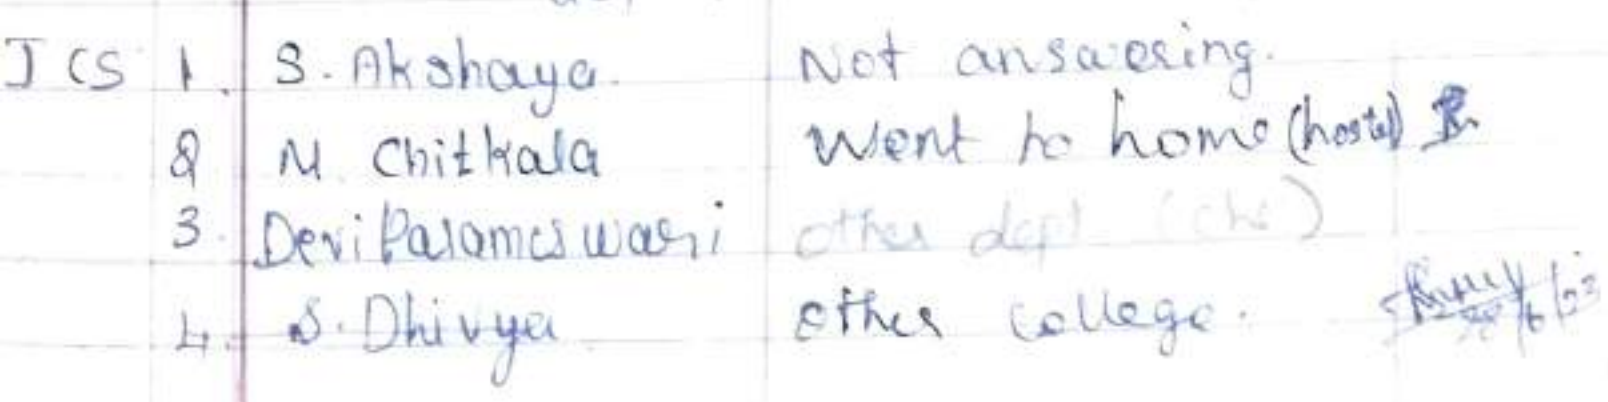 JCS 1. S. Akshaya. Not answering.
2 M. Chitkala Went to home (hostel)
3. Devi Parameswari other dept (che)
4. S. Dhivya other college.